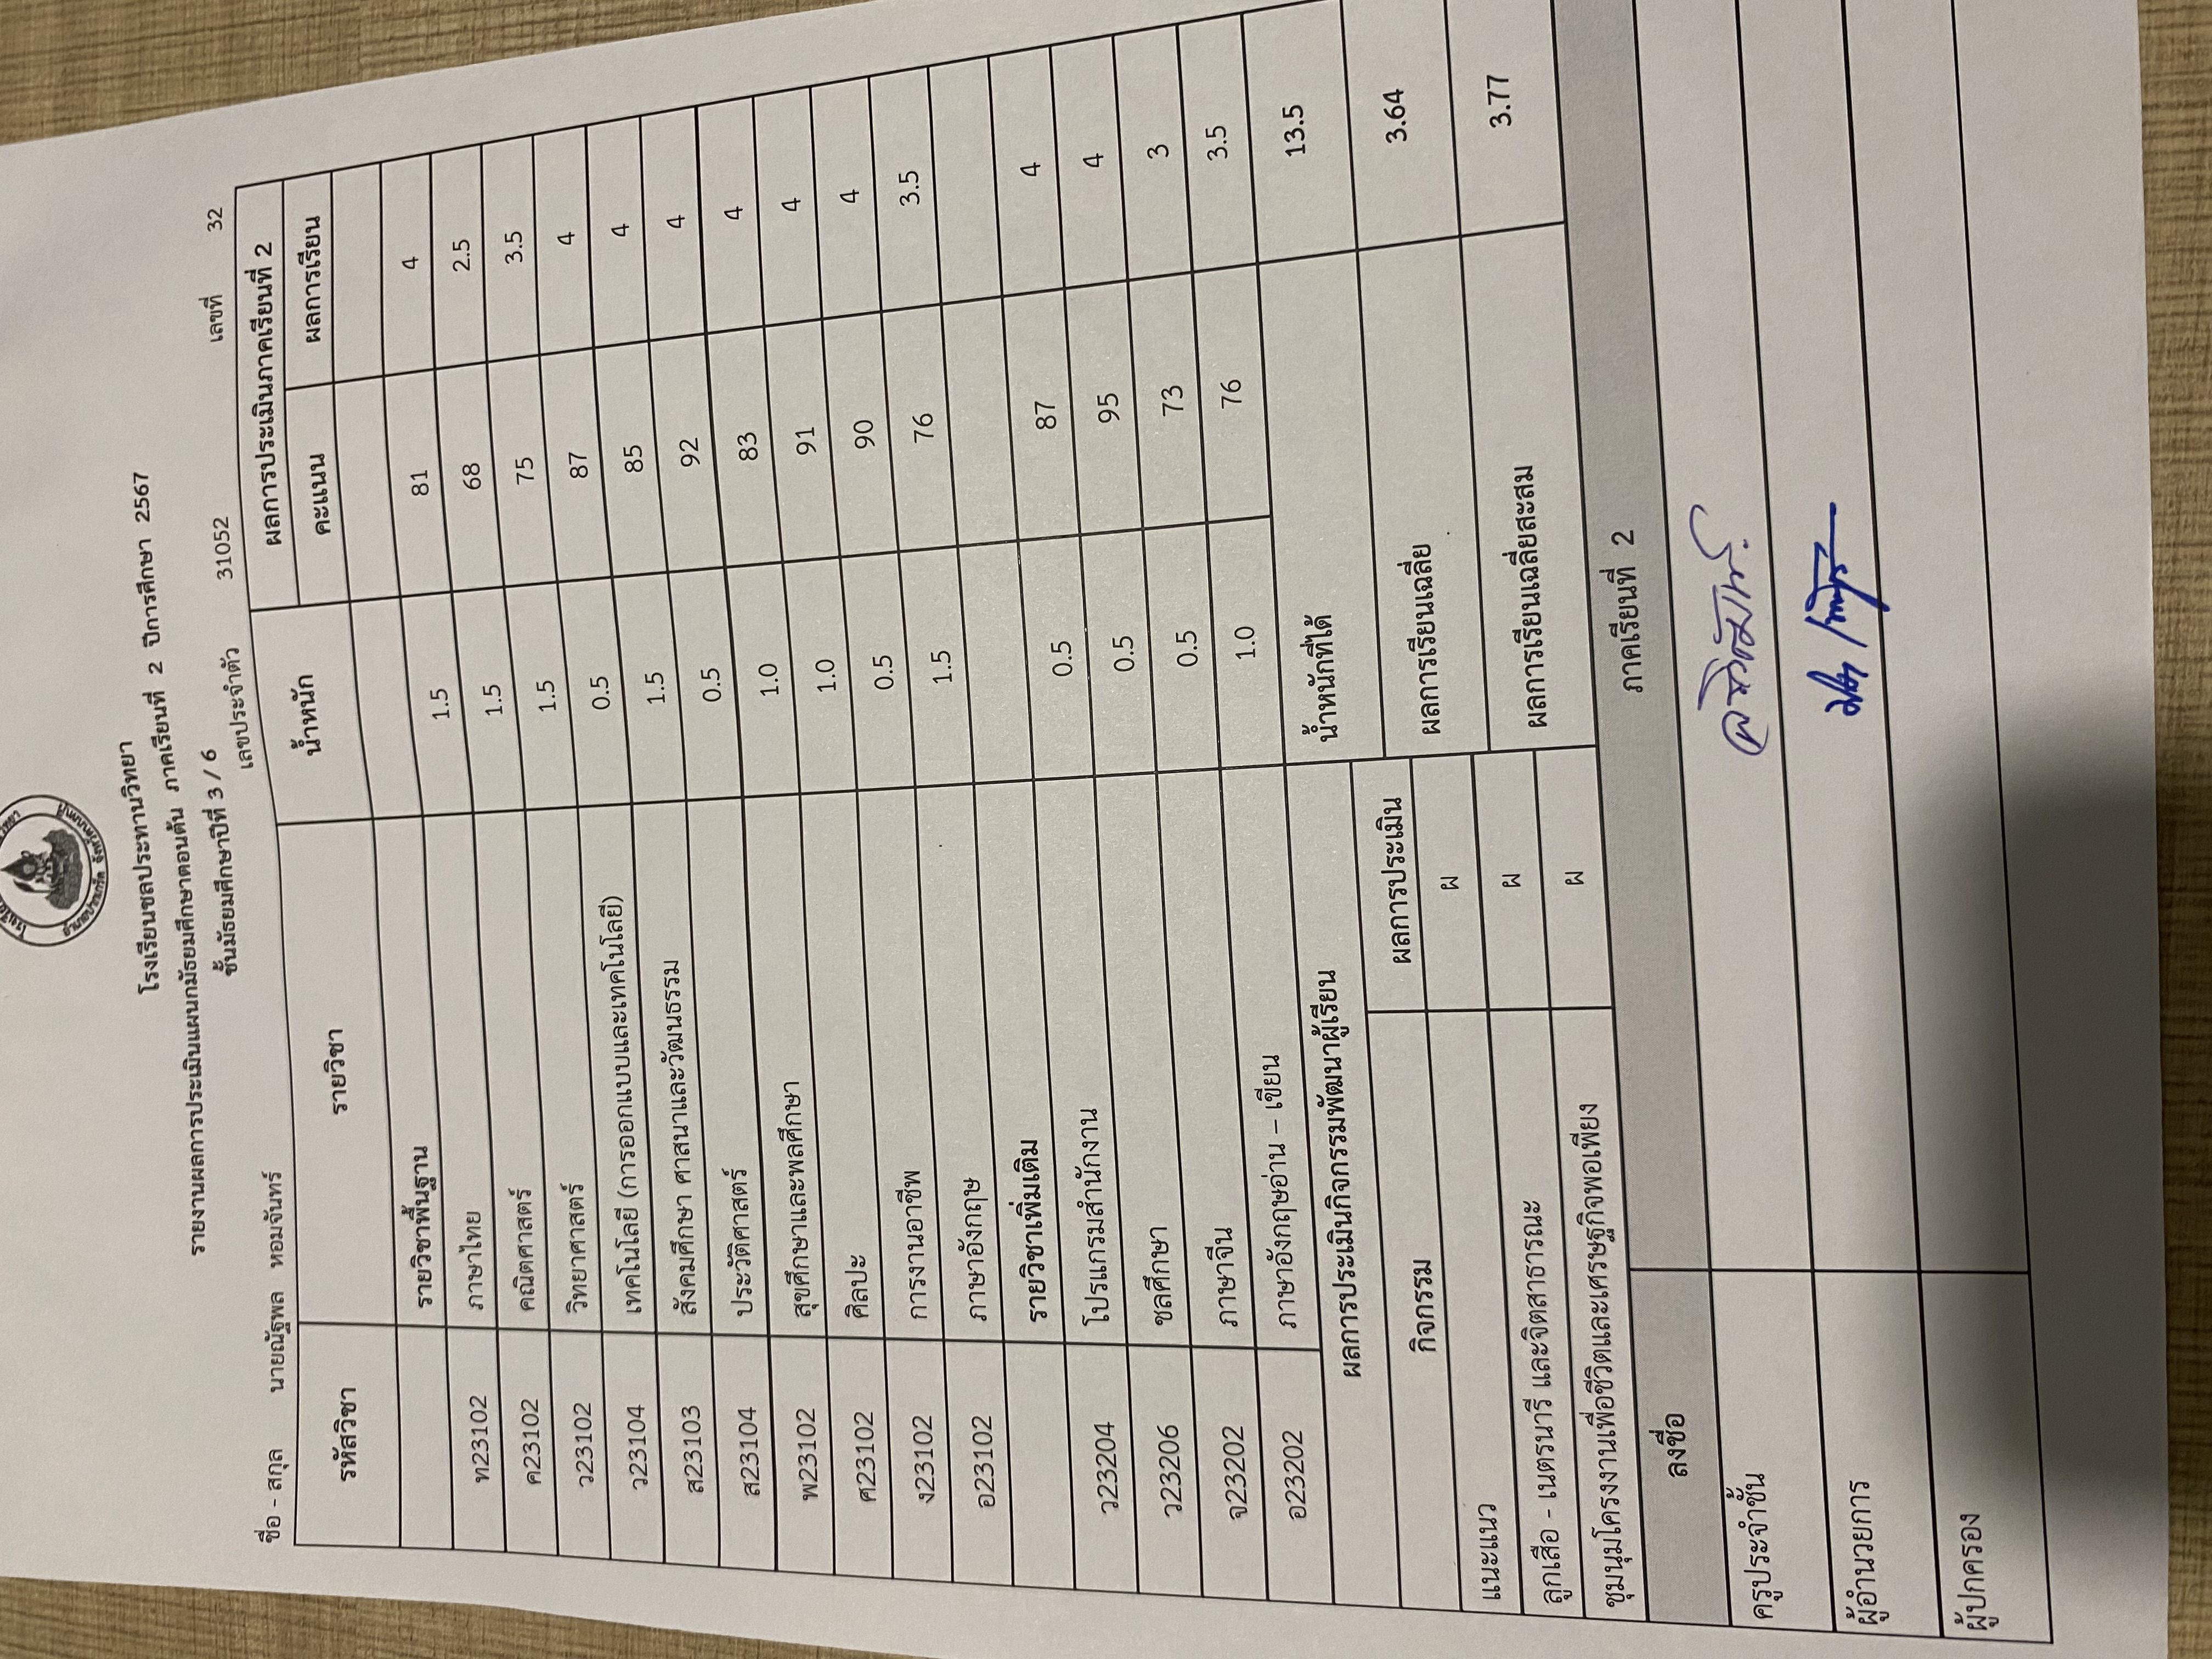 โรงเรียนชลประทานวิทยา
รายงานผลการประเมินแผนกมัธยมศึกษาตอนต้น ภาคเรียนที่ 2 ปีการศึกษา 2567
ชั้นมัธยมศึกษาปีที่ 3 / 6
ชื่อ - สกุล นายณัฐพล หอมจันทร์ เลขประจำตัว 31052 เลขที่ 32
รหัสวิชา รายวิชา น้ำหนัก ผลการประเมินภาคเรียนที่ 2
คะแนน ผลการเรียน
รายวิชาพื้นฐาน
ท23102 ภาษาไทย 1.5 81 4
ค23102 คณิตศาสตร์ 1.5 68 2.5
ว23102 วิทยาศาสตร์ 1.5 75 3.5
ว23104 เทคโนโลยี (การออกแบบและเทคโนโลยี) 0.5 87 4
ส23103 สังคมศึกษา ศาสนาและวัฒนธรรม 1.5 85 4
ส23104 ประวัติศาสตร์ 0.5 92 4
พ23102 สุขศึกษาและพลศึกษา 1.0 83 4
ศ23102 ศิลปะ 1.0 91 4
ง23102 การงานอาชีพ 0.5 90 4
อ23102 ภาษาอังกฤษ 1.5 76 3.5
รายวิชาเพิ่มเติม
ว23204 โปรแกรมสำนักงาน 0.5 87 4
ว23206 ชลศึกษา 0.5 95 4
จ23202 ภาษาจีน 0.5 73 3
อ23202 ภาษาอังกฤษอ่าน – เขียน 1.0 76 3.5
ผลการประเมินกิจกรรมพัฒนาผู้เรียน น้ำหนักที่ได้ 13.5
กิจกรรม ผลการประเมิน ผลการเรียนเฉลี่ย 3.64
แนะแนว ผ
ลูกเสือ - เนตรนารี และจิตสาธารณะ ผ ผลการเรียนเฉลี่ยสะสม 3.77
ชุมนุมโครงงานเพื่อชีวิตและเศรษฐกิจพอเพียง ผ
ลงชื่อ ภาคเรียนที่ 2
ครูประจำชั้น
ผู้อำนวยการ
ผู้ปกครอง